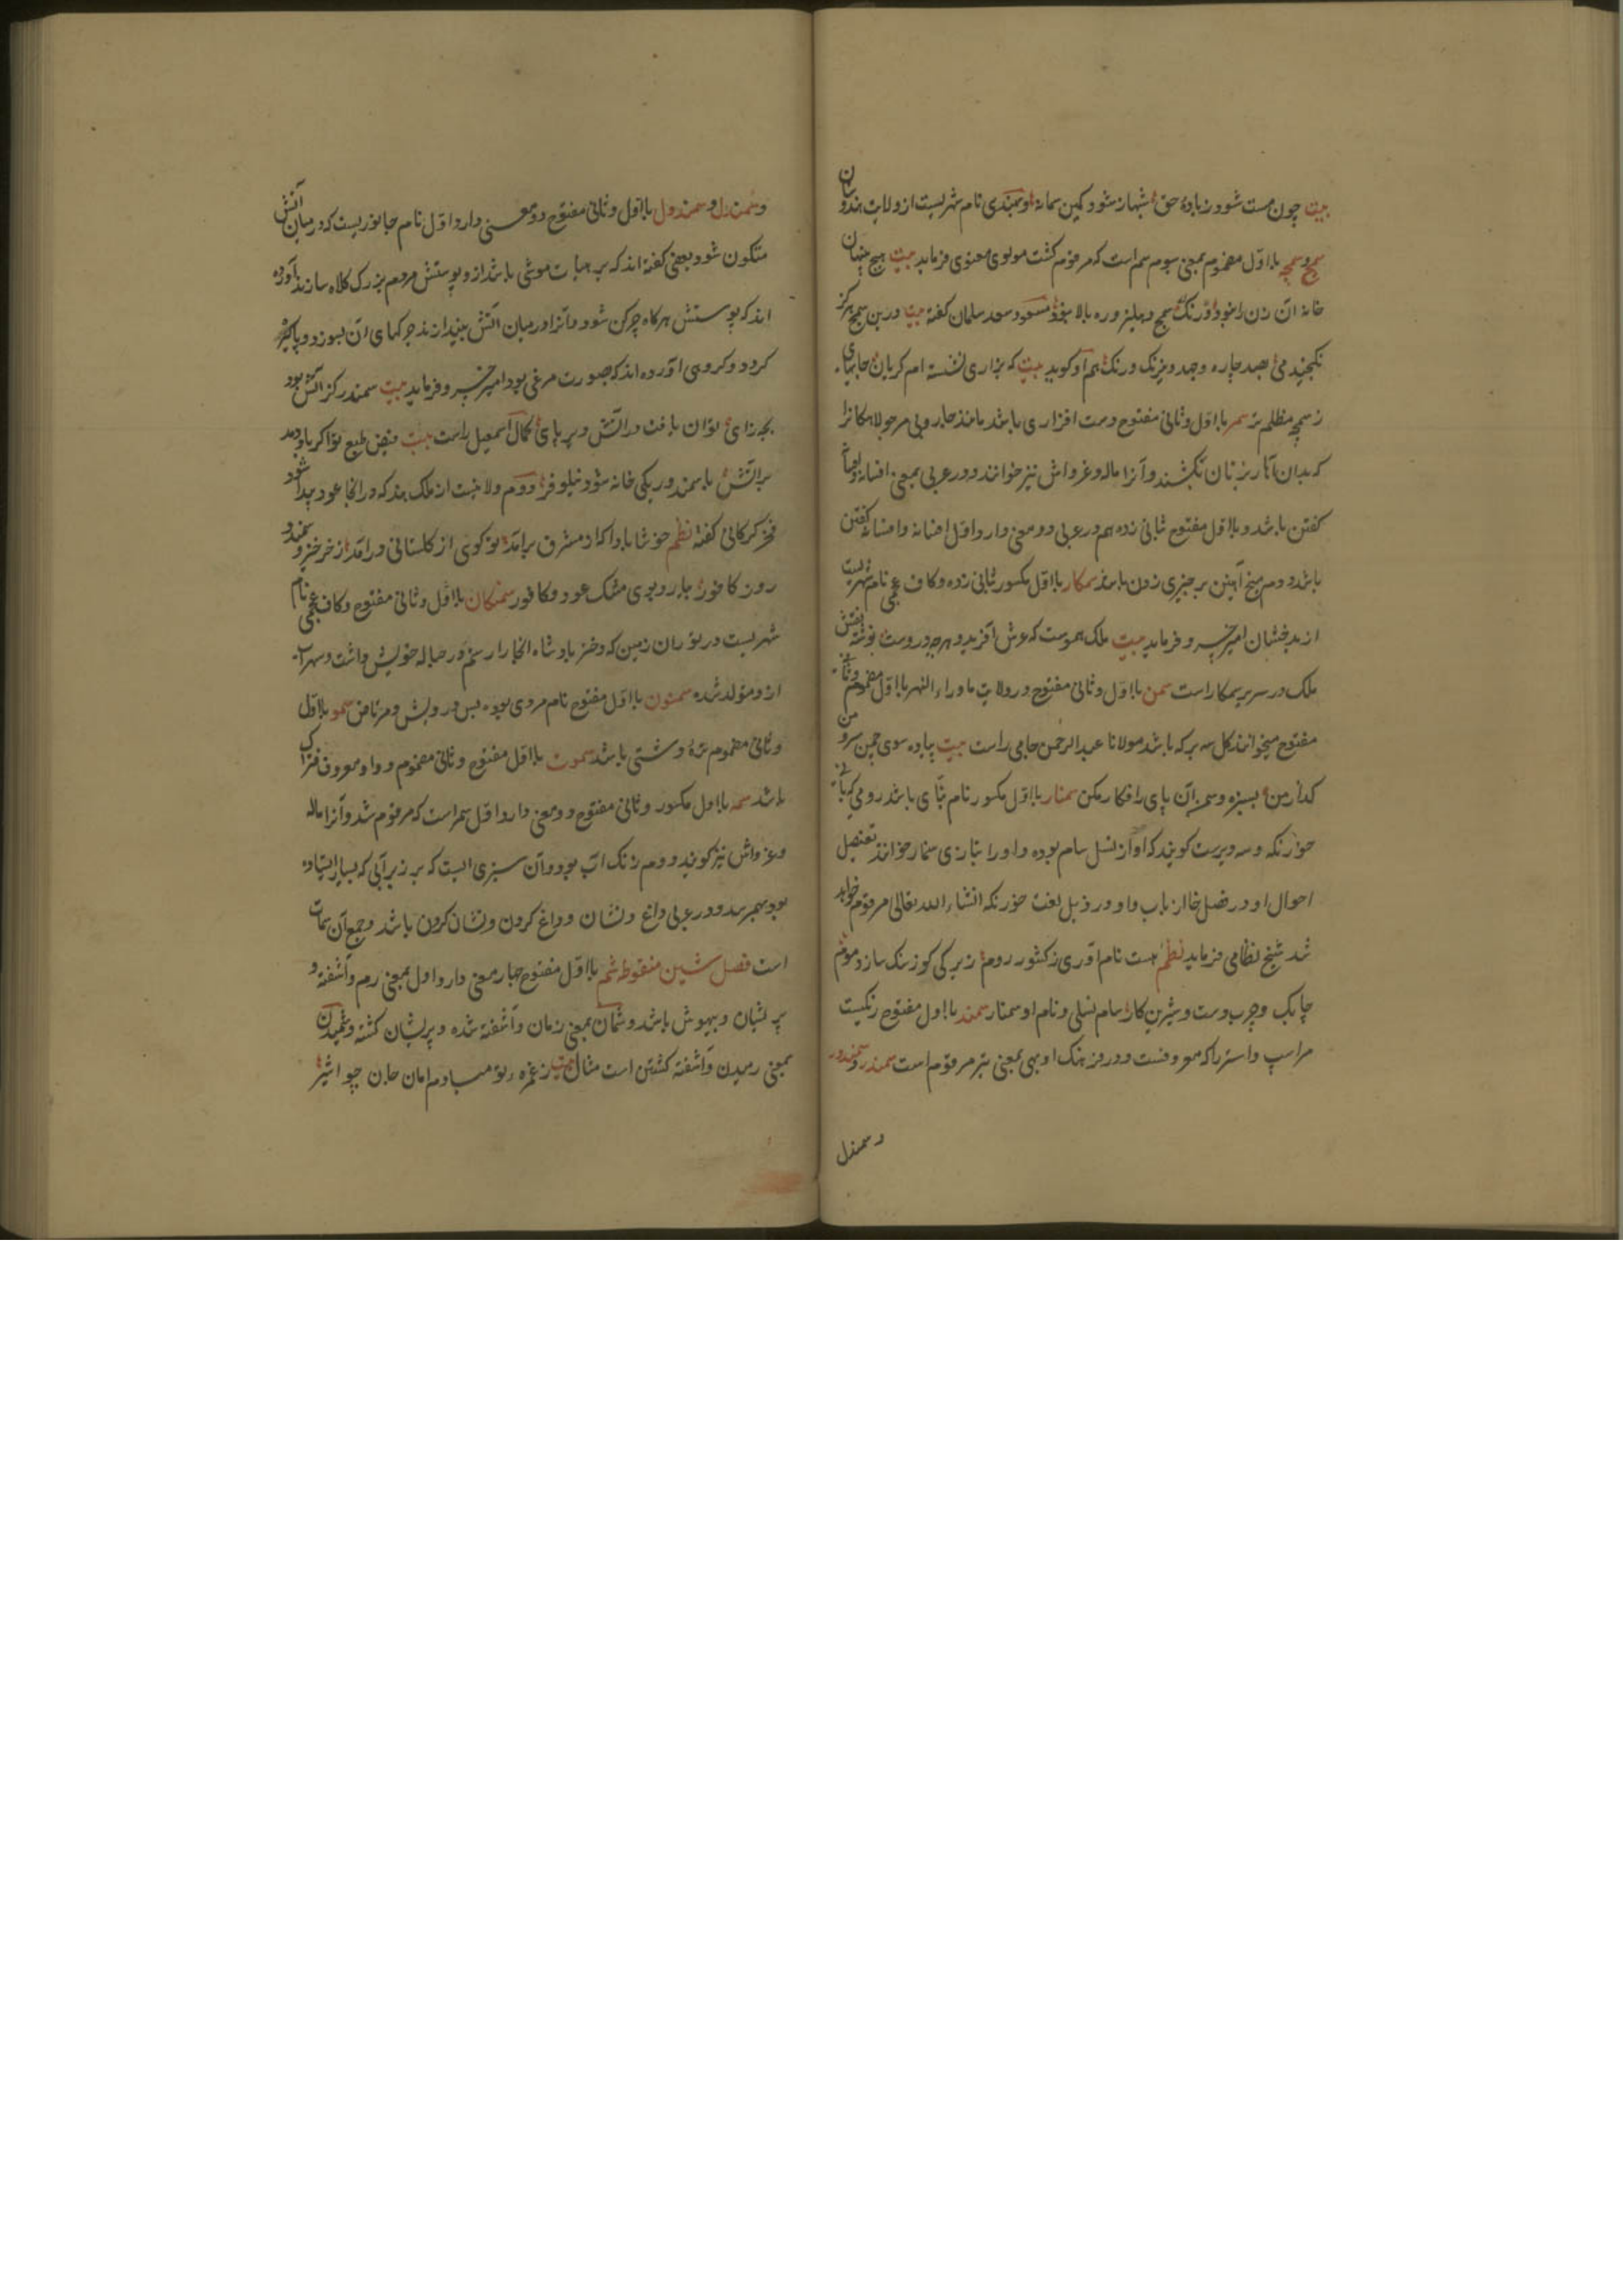 بیت چون مست شود ز باده حق شهباز شود کمین سمانه و سمندی نام شهریست از ولایت هندوستان
سمج و سمجه با اول مضموم بمعنی سیوم سم است که مرقوم گشت مولوی معنوی فرماید بیت هیچ پنهان
خانه آن زن را نبود سمج و دهلیز و ره بالا نبود مسعود سعد سلمان گفته بیت درین سمج هرگز
نگنجید می بصد چاره و جهد و نیرنگ و رنگ هم او گوید بیت که بزاری نشسته ام گریان جای
ز سمج مظلم تر سمر با اول و ثانی مفتوح دست افزاری باشد مانند جاروبی مر جولاهکان را
که بدان آهار بر تان بکشند و آنرا ماله و غرواش نیز خوانند و در عربی بمعنی افسانه
گفتن باشد و با اول مفتوح بثانی زده هم در عربی دو معنی دارد اول افسانه و افسانه گفتن
باشد دوم میخ آهنین بر چیزی زدن باشد سمکار با اول مکسور بثانی زده و کاف عجمی نام شهریست
از بدخشان امیر خسرو فرماید بیت ملک هموست که عرش آفرید و هرچه دروست نوشته نقش
ملک در سریر سمکار است سمن با اول و ثانی مفتوح و در ولایت ماوراء النهر با اول مضموم و ثانی
مفتوح میخوانند گل سه برکه باشد مولانا عبدالرحمن جامی راست بیت پیاده سوی چمن سرو من
گذار من بسبزه و سمن آن پای را فکار مکن سمنار با اول مکسور نام بنّای باشد رومی که بانی
خورنکه و سه دیرست گویند که او از نسل سام بوده و او را بتازی سنمار خوانند تفصیل
احوال او در فصل خا از باب واو در ذیل لغت خورنکه انشاء الله تعالی مرقوم خواهد
شد شیخ نظامی فرماید نظم هست نام آوری ز کشور روم زیرکی کو ز سنگ سازد موم
چابک و چرب دست و شیرین کار سام نسلی و نام او سمنار سمند با اول مفتوح رنگیست
مر اسپ و استر را که معروفست و در فرهنگ اوبهی بمعنی تیر مرقوم است سمندر و سمندور
و سمندل
و سمندل و سمندول با اول و ثانی مفتوح دو معنی دارد اول نام جانوریست که در میان آتش
متکون شود بعضی گفته اند که بر هیأت موشی باشد از و پوستش مردم بزرگ کلاه سازند و آورده
اند که پوستش هرگاه چرکن شود و آنرا در میان آتش بیندازند چرکهای آن بسوزد و پاکیزه
گردد و گروهی آورده اند که بصورت مرغی بود امیر خسرو فرماید بیت سمندر کز آتش بود
بچه زای توان یافت در آتش و پر بپای کمال اسمعیل راست بیت فیض طبع تو اگر یاد دهد
بر آتش با سمندر بیکی خانه شود نیلوفر دوم ولایتیست از ملک هند که در آنجا عود پیدا شود
فخر گرکانی گفته نظم خوشا بادا که از مشرق برآمد تو گوی از گلستانی درآمد از خرخیز و سمندور
روز کافور بیارد بوی مشک عود و کافور سمنکان با اول و ثانی مفتوح و کاف عجمی نام
شهریست در توران زمین که دختر پادشاه آنجا را رستم در حباله خویش داشت و سهراب
از و متولد شده سمنون با اول مفتوح نام مردی بوده بس درویش و مرتاض سمو با اول
و ثانی مضموم تره دشتی باشد سموت با اول مفتوح و ثانی مضموم و واو معروف فتراک
باشد سمه با اول مکسور و ثانی مفتوح دو معنی دارد اول سمر است که مرقوم شد و آنرا ماله
و غرواش نیز گویند دوم زنگ آب بود و آن سبزی است که بر زبر آبی که بسیار ایستاده
بود بهم رسد و در عربی داغ و نشان و داغ کردن و نشان کردن باشد و جمع آن سمات
است فصل شین منقوطه شم با اول مفتوح چهار معنی دارد اول بمعنی رم و آشفته و
پریشان و بیهوش باشد و شمان بمعنی رمان و آشفته شده و پریشان گشته و شمیدن
بمعنی رمیدن و آشفته گشتن است مثال بیت ز غمزه تو مبادم امان جان چو اشیر